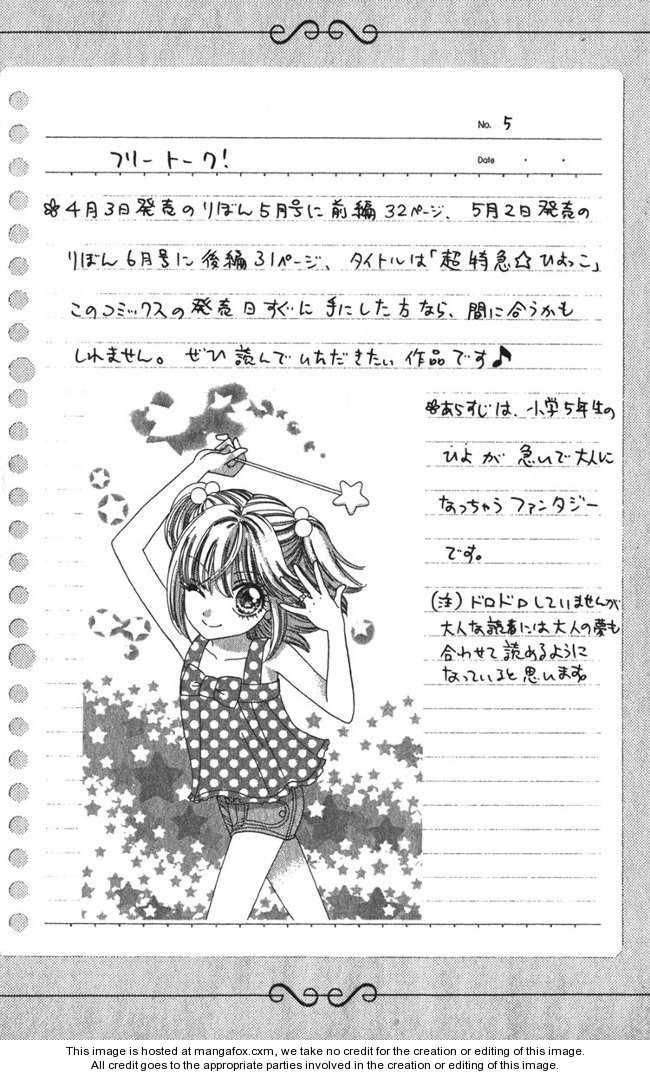 No. 5
フリートーク!
Date
✽4月3日発売のりぼん5月号に前編32ページ、5月2日発売の
りぼん6月号に後編31ページ、タイトルは「超特急☆ひよっこ」
このコミックスの発売日すぐに手にした方なら、間に合うかも
しれません。ぜひ読んでいただきたい作品です♪
✽あらすじは、小学5年生の
ひよが急いで大人に
なっちゃうファンタジー
です。
(注)ドロドロしていませんが
大人な読者には大人の夢も
合わせて読めるように
なっていると思います。
This image is hosted at mangafox.cxm, we take no credit for the creation or editing of this image.
All credit goes to the appropriate parties involved in the creation or editing of this image.